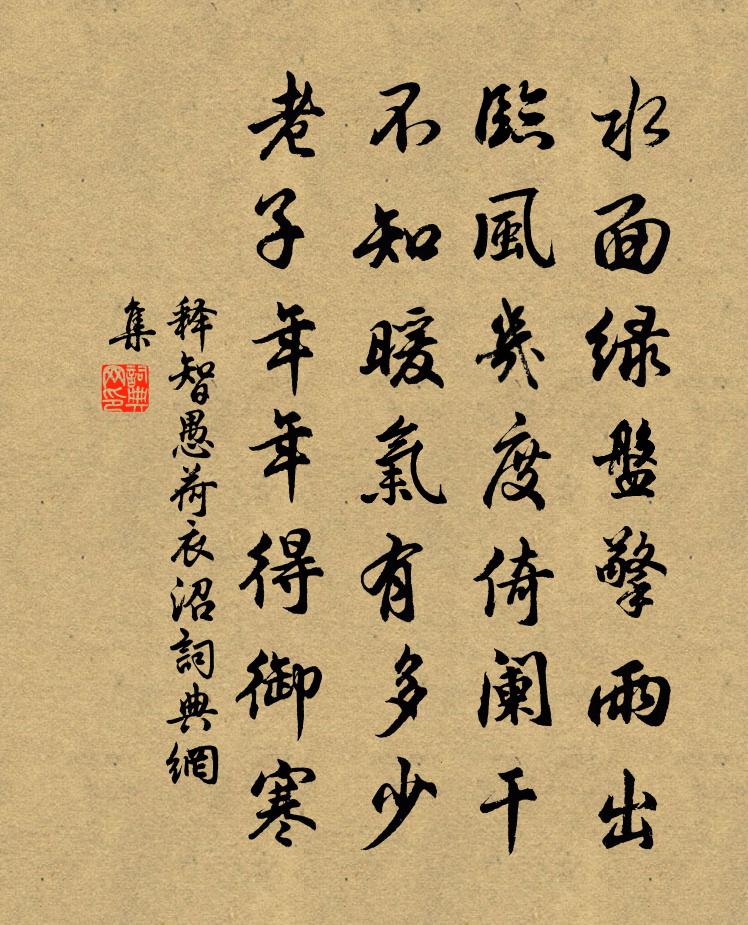 水面緑盤擎雨出
臨風幾度倚闌干
不知暖氣有多少
老子年年得御寒
释智愚荷衣沼詞典網
集
詞典
网印